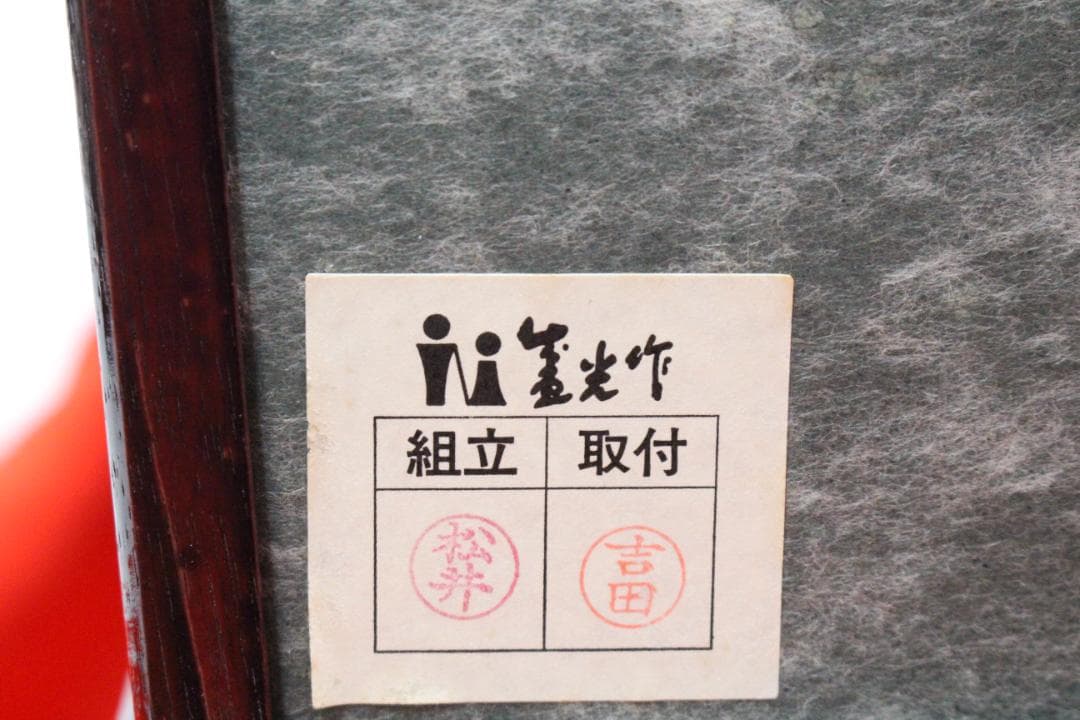 盛光作
組立 取付
松井 吉田